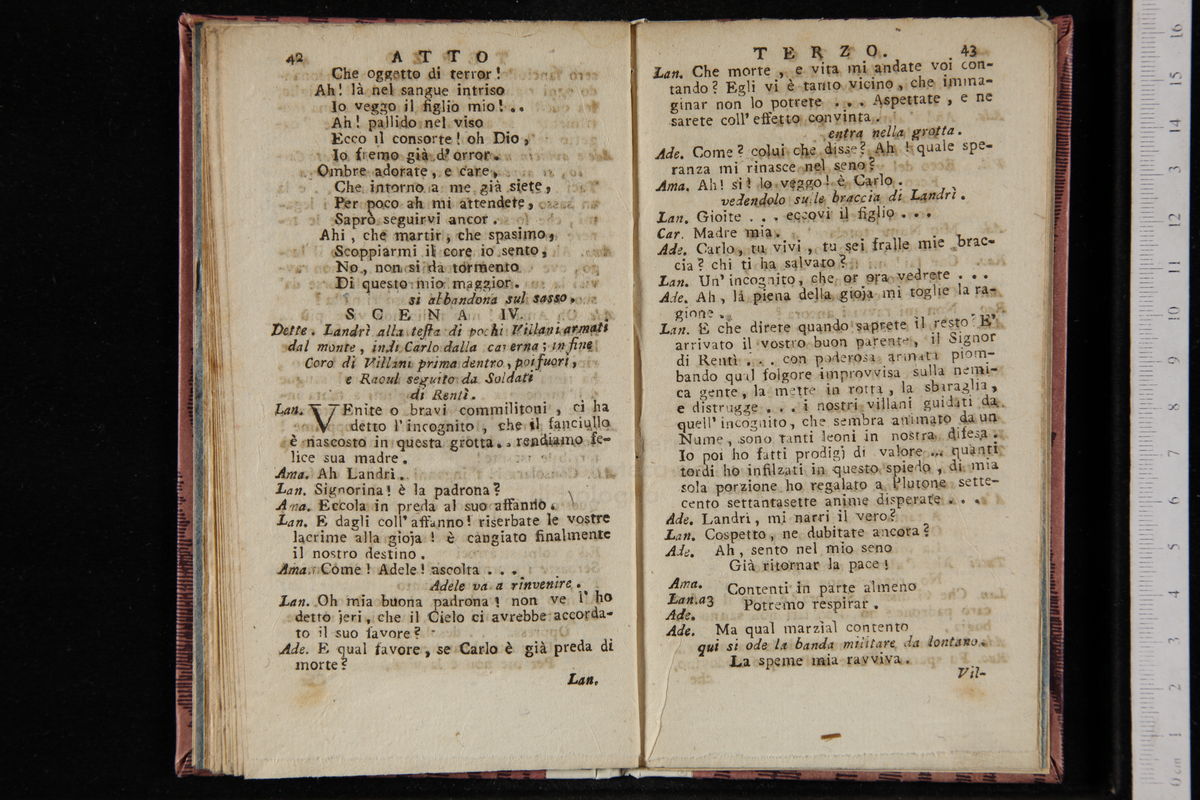 42 ATTO
Che oggetto di terror!
Ah! là nel sangue intriso
Io veggo il figlio mio! ..
Ah! pallido nel viso
Ecco il consorte! oh Dio,
Io fremo già d'orror.
Ombre adorate, e care,
Che intorno a me già siete,
Per poco ah mi attendete,
Saprò seguirvi ancor.
Ahi, che martir, che spasimo,
Scoppiarmi il core io sento,
No, non si dà tormento
Di questo mio maggior.
si abbandona sul sasso.
SCENA IV.
Dette. Landrì alla testa di pochi Villani armati
dal monte, indi Carlo dalla caverna; in fine
Coro di Villani prima dentro, poi fuori,
e Raoul seguito da Soldati
di Rentì.
Lan. VEnite o bravi commilitoni, ci ha
detto l'incognito, che il fanciullo
è nascosto in questa grotta.. rendiamo fe-
lice sua madre.
Ama. Ah Landrì.
Lan. Signorina! è la padrona?
Ama. Eccola in preda al suo affanno.
Lan. E dagli coll'affanno! riserbate le vostre
lacrime alla gioja! è cangiato finalmente
il nostro destino.
Ama. Come! Adele! ascolta ...
Adele va a rinvenire.
Lan. Oh mia buona padrona! non ve l'ho
detto jeri, che il Cielo ci avrebbe accorda-
to il suo favore?
Ade. E qual favore, se Carlo è già preda di
morte?
Lan.
TERZO. 43
Lan. Che morte, e vita mi andate voi con-
tando? Egli vi è tanto vicino, che imma-
ginar non lo potrete ... Aspettate, e ne
sarete coll'effetto convinta.
entra nella grotta.
Ade. Come? colui che disse? Ah! quale spe-
ranza mi rinasce nel seno?
Ama. Ah! sì! lo veggo! è Carlo.
vedendolo sulle braccia di Landrì.
Lan. Gioite ... eccovi il figlio ...
Car. Madre mia.
Ade. Carlo, tu vivi, tu sei fralle mie brac-
cia? chi ti ha salvato?
Lan. Un'incognito, che or ora vedrete ...
Ade. Ah, la piena della gioja mi toglie la ra-
gione.
Lan. E che direte quando saprete il resto? E'
arrivato il vostro buon parente, il Signor
di Rentì ... con poderosa armata piom-
bando qual folgore improvvisa sulla nemi-
ca gente, la mette in rotta, la sbaraglia,
e distrugge ... i nostri villani guidati da
quell'incognito, che sembra animato da un
Nume, sono tanti leoni in nostra difesa.
Io poi ho fatti prodigi di valore ... quanti
tordi ho infilzati in questo spiedo, di mia
sola porzione ho regalato a Plutone sette-
cento settantasette anime disperate ...
Ade. Landrì, mi narri il vero?
Lan. Cospetto, ne dubitate ancora?
Ade. Ah, sento nel mio seno
Già ritornar la pace!
Ama.
Lan. a3 Contenti in parte almeno
Ade. Potremo respirar.
Ade. Ma qual marzial contento
qui si ode la banda militare da lontano.
La speme mia ravviva.
Vil-
0 cm 1 2 3 4 5 6 7 8 9 10 11 12 13 14 15 16